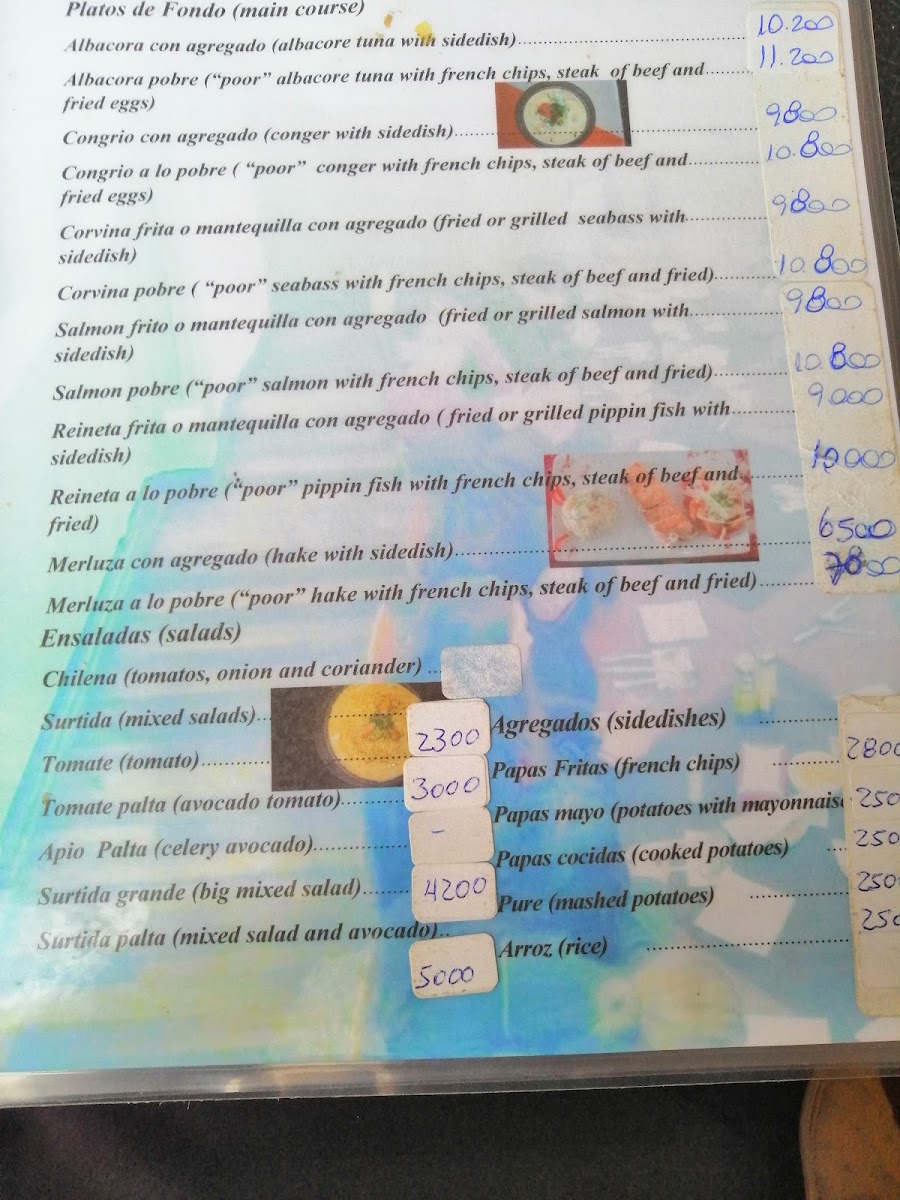 Platos de Fondo (main course)
Albacora con agregado (albacore tuna with sidedish) 10.200
Albacora pobre (“poor” albacore tuna with french chips, steak of beef and 11.200
fried eggs)
Congrio con agregado (conger with sidedish) 9800
Congrio a lo pobre ( “poor” conger with french chips, steak of beef and 10.800
fried eggs)
Corvina frita o mantequilla con agregado (fried or grilled seabass with 9800
sidedish)
Corvina pobre ( “poor” seabass with french chips, steak of beef and fried) 10.800
Salmon frito o mantequilla con agregado (fried or grilled salmon with 9800
sidedish)
Salmon pobre (“poor” salmon with french chips, steak of beef and fried) 10.800
Reineta frita o mantequilla con agregado ( fried or grilled pippin fish with 9000
sidedish)
Reineta a lo pobre (“poor” pippin fish with french chips, steak of beef and 10000
fried)
Merluza con agregado (hake with sidedish) 6500
Merluza a lo pobre (“poor” hake with french chips, steak of beef and fried)
Ensaladas (salads)
Chilena (tomatos, onion and coriander)
Surtida (mixed salads) 2300
Tomate (tomato) 3000
Tomate palta (avocado tomato) -
Apio Palta (celery avocado)
Surtida grande (big mixed salad) 4200
Surtida palta (mixed salad and avocado) 5000
Agregados (sidedishes)
Papas Fritas (french chips) 2800
Papas mayo (potatoes with mayonnais 250
Papas cocidas (cooked potatoes) 250
Pure (mashed potatoes) 250
Arroz (rice) 250